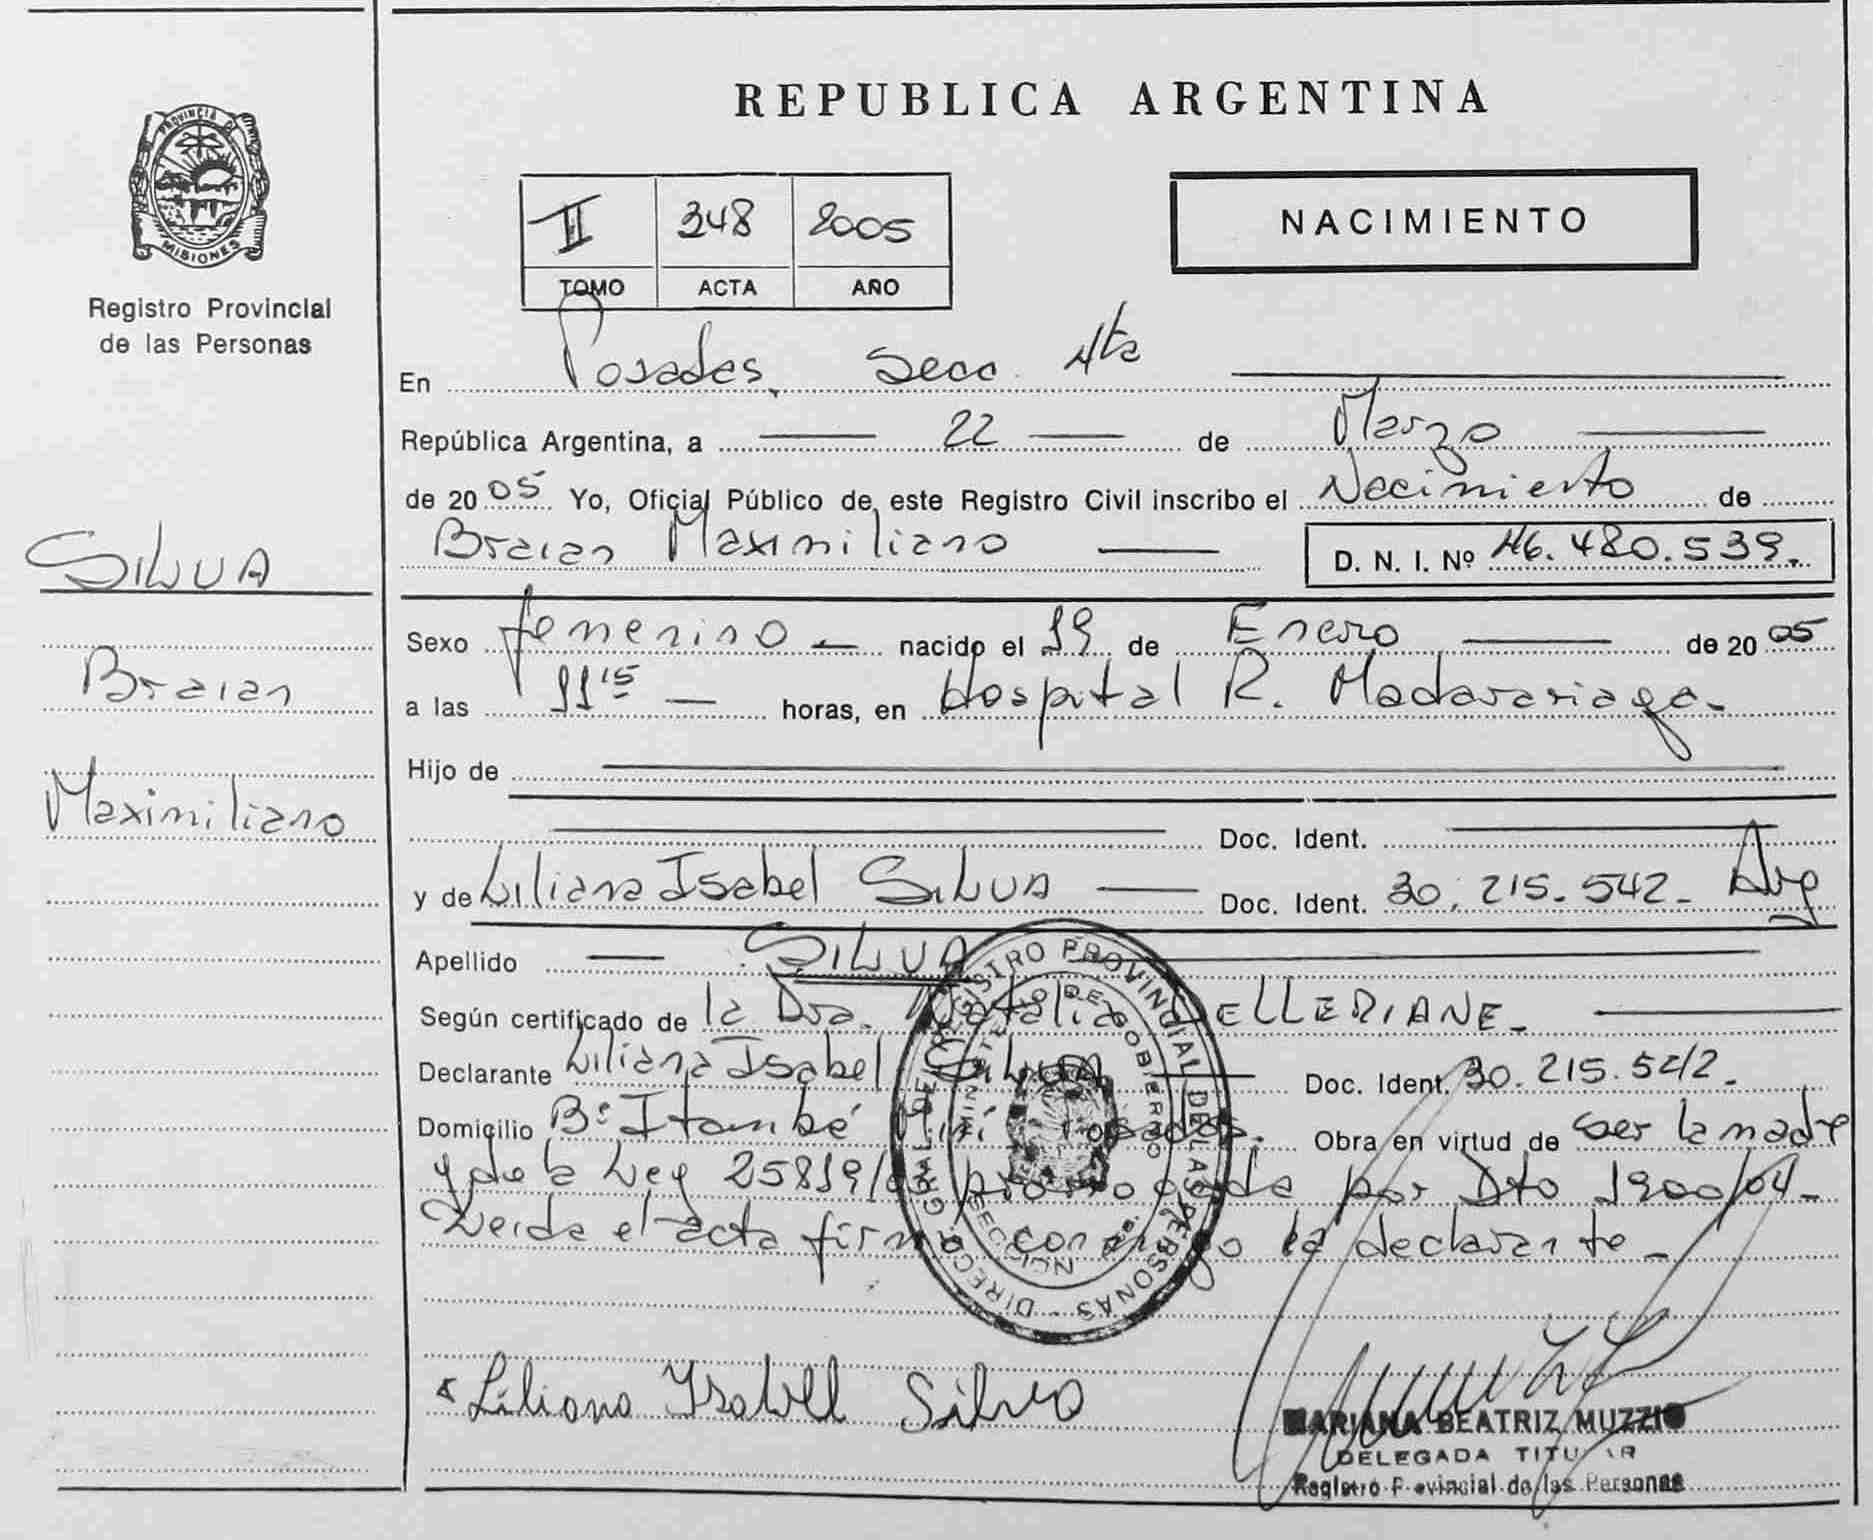 REPUBLICA ARGENTINA
PROVINCIA DE
MISIONES
Registro Provincial
de las Personas
II 348 2005
TOMO ACTA AÑO
NACIMIENTO
SILVA
Braian
Maximiliano
En Posadas, Secc. 4ta
República Argentina, a 22 de Marzo
de 2005 Yo, Oficial Público de este Registro Civil inscribo el Nacimiento de
Braian Maximiliano D. N. I. Nº 46.480.539.
Sexo femenino nacido el 19 de Enero de 2005
a las 11 15 horas, en Hospital R. Madarariaga.
Hijo de
Doc. Ident.
y de Liliana Isabel SILVA Doc. Ident. 30.215.542. Arg
Apellido SILVA
Según certificado de la Dra. Natalia PELLERIANE.
Declarante Liliana Isabel Silva Doc. Ident. 30.215.542.
Domicilio Bº Itambé Miní Posadas. Obra en virtud de ser la madre
y de la Ley 25819/ prorrogada por Dto 1900/04.
Leida el acta firma conmigo la declarante.
DIRECC. GRAL. DE REGISTRO PROVINCIAL DE LAS PERSONAS
MINISTERIO DE GOBIERNO
Liliana Ysabell Silva
MARIANA BEATRIZ MUZZIO
DELEGADA TITULAR
Registro Provincial de las Personas